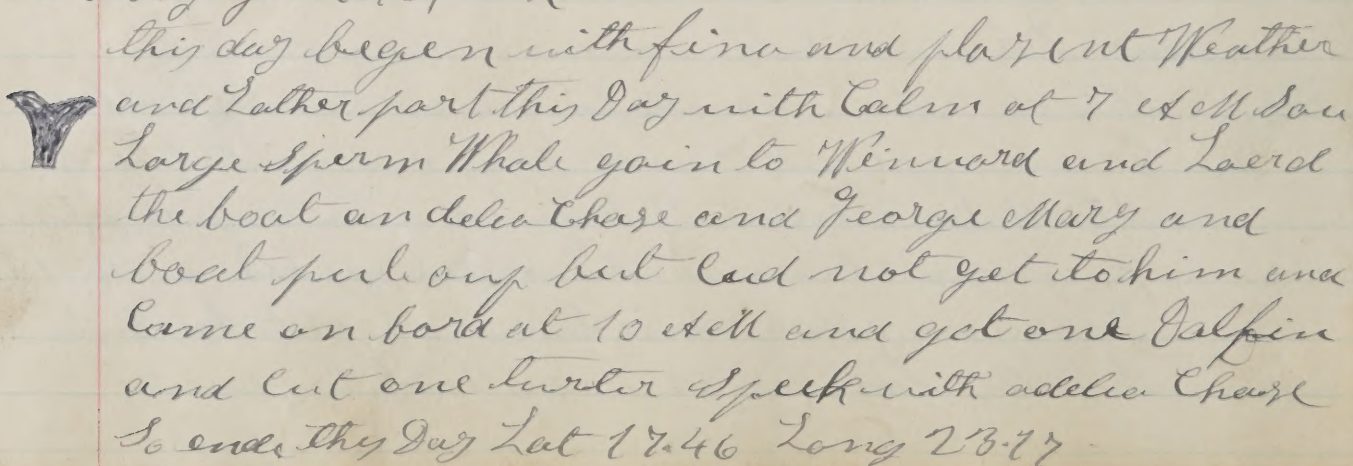 this day begen with fine and plasent Weather
and Lather part this Day with Calm at 7 AM Sau
Large Sperm Whale goin to Winnard and Laerd
the boat an delia Chase and George Mary and
boat pul oup but Cud not get to him and
Came on bord at 10 AM and got one Dalfin
and Cut one turter Speek with adelia Chase
So ends thes Day Lat 17.46 Long 23.17